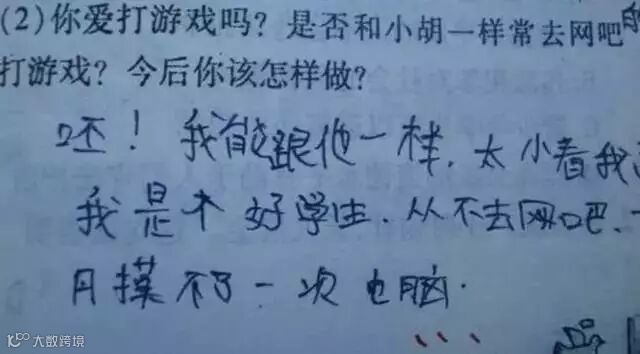 (2)你爱打游戏吗？是否和小胡一样常去网吧的
打游戏？今后你该怎样做？
呸！我能跟他一样，太小看我
我是个好学生，从不去网吧，
月摸不了一次电脑.
大数跨境